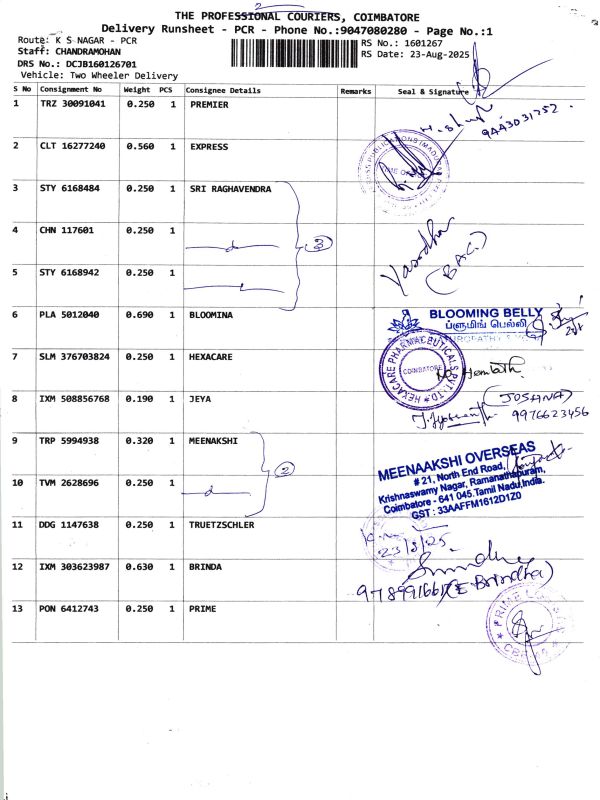 2
THE PROFESSIONAL COURIERS, COIMBATORE
Delivery Runsheet - PCR - Phone No.:9047080280 - Page No.:1
Route: K S NAGAR - PCR
RS No.: 1601267
Staff: CHANDRAMOHAN
RS Date: 23-Aug-2025
DRS No.: DCJB160126701
Vehicle: Two Wheeler Delivery
S No Consignment No Weight PCS Consignee Details Remarks Seal & Signature
1 TRZ 30091041 0.250 1 PREMIER
9443031752
2 CLT 16277240 0.560 1 EXPRESS
3 STY 6168484 0.250 1 SRI RAGHAVENDRA
4 CHN 117601 0.250 1
3
Yasodha
5 STY 6168942 0.250 1
6 PLA 5012040 0.690 1 BLOOMINA
BLOOMING BELLY
ப்ளுமிங் பெல்லி
7 SLM 376703824 0.250 1 HEXACARE
HEXACARE PHARMACEUTICALS PVT. LTD.
COIMBATORE
8 IXM 508856768 0.190 1 JEYA
(JOSHNA)
9976623456
9 TRP 5994938 0.320 1 MEENAKSHI
2
MEENAAKSHI OVERSEAS
# 21, North End Road,
Krishnaswamy Nagar, Ramanathapuram,
Coimbatore - 641 045. Tamil Nadu, India.
GST : 33AAFFM1612D1Z0
10 TVM 2628696 0.250 1
11 DDG 1147638 0.250 1 TRUETZSCHLER
23/8/25
12 IXM 303623987 0.630 1 BRINDA
(E Brindha)
13 PON 6412743 0.250 1 PRIME
PRIME